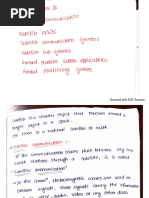 Satellite communication
Satellite orbits
Satellite communication systems
Satellite sub systems
Ground stations Satellite applications
Global positioning systems
Scanned with ACE Scanner
Satellite is a smaller object that revolves around a
larger object in a space.
→ moon is a natural satellite of earth.
Satellite communication :
If the communication takes place between any two
earth stations through a satellite, it is called
Satellite communication.
In this comm, electromagnetic waves are used as
carrier signals. These signals carries the information
such as voice, audio, video or any other data